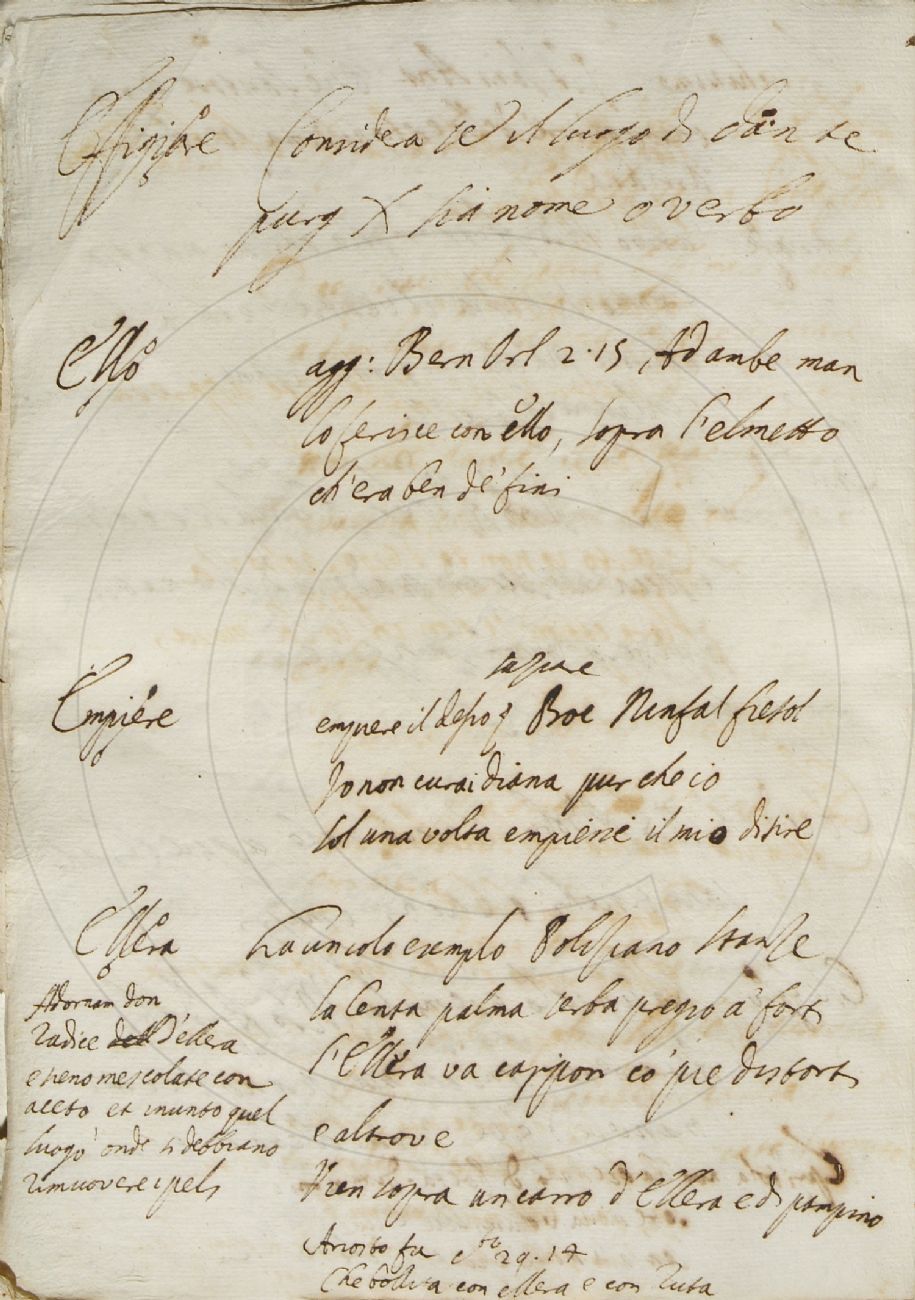 Effigiare Considera se il luogo di Dante
purg X sia nome o verbo
Ello agg: Bern Orl 2.15, Ad ambe man
lo ferisce con ello, sopra l'elmetto
ch'era ben de' fini
Empiere
empiere il desio Boc Ninfal fiesol
Io non curai diana pur che io
sol una volta empiessi il mio disire
Ellera ha un solo exemplo Poliziano stanze
la lenta palma serba pregio a' forti
l'Ellera va carpon co' pie distorti
e altrove
Vien sopra un carro d'Ellera e di pampino
Ariosto fu c.to 29.14
Che bollita con ellera e con ruta
Adornam don
Radice d'ellera
mescolate con
aceto et inunto quel
luogo onde si debbiano
rimuovere i peli